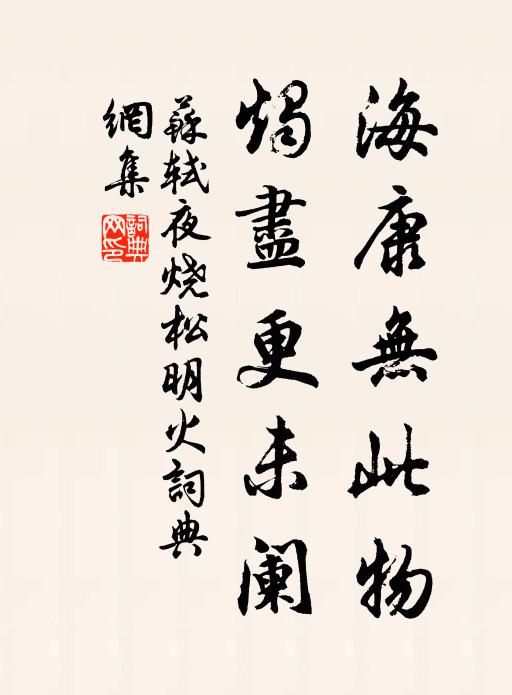 海康無此物
燭盡更未阑
蘇軾夜烧松明火詞典
網集
詞典
网印